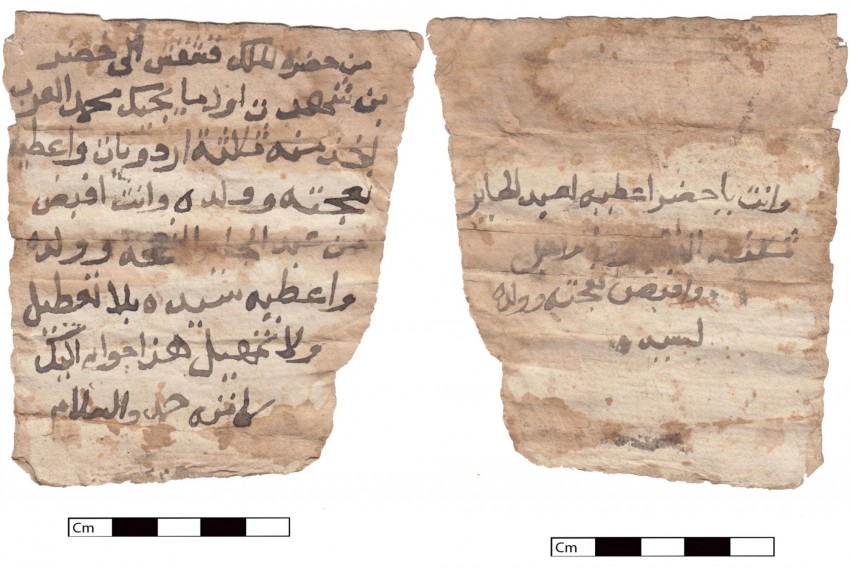 من حضره الملك قشقش الى خضر
بن شهدن اول ما يجيك محمد العرب
اخذ منه ثلاثة اردويات واعطيه
نعجته وولده وانت اقبض
من عبد الجابر النعجه وولده
واعطيه سيده بلا تعطيل
ولا تمهيل هذا جوابه اليك
حد والسلام
وانت يا خضر اعطيه لعبد الجابر
ثلاثه
واقبض نعجته وولده
لسيده
Cm
Cm